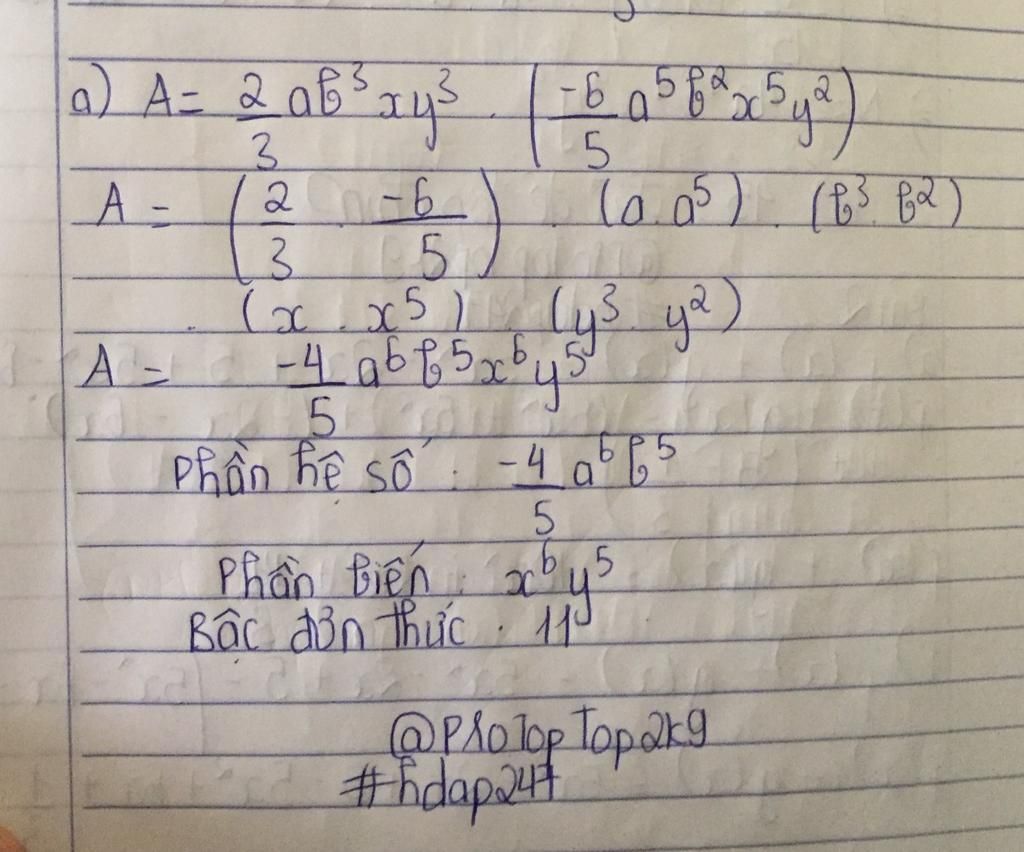 a) A = 2/3 ab³xy³ . (-6/5 a⁵b²x⁵y²)
A = (2/3 . -6/5) . (a.a⁵) . (b³.b²)
. (x . x⁵) . (y³ y²)
A = -4/5 a⁶b⁵x⁶y⁵
Phần hệ số : -4/5 a⁶b⁵
Phần biến : x⁶y⁵
Bậc đơn thức : 11
@ProTopTop2k9
#hdap247